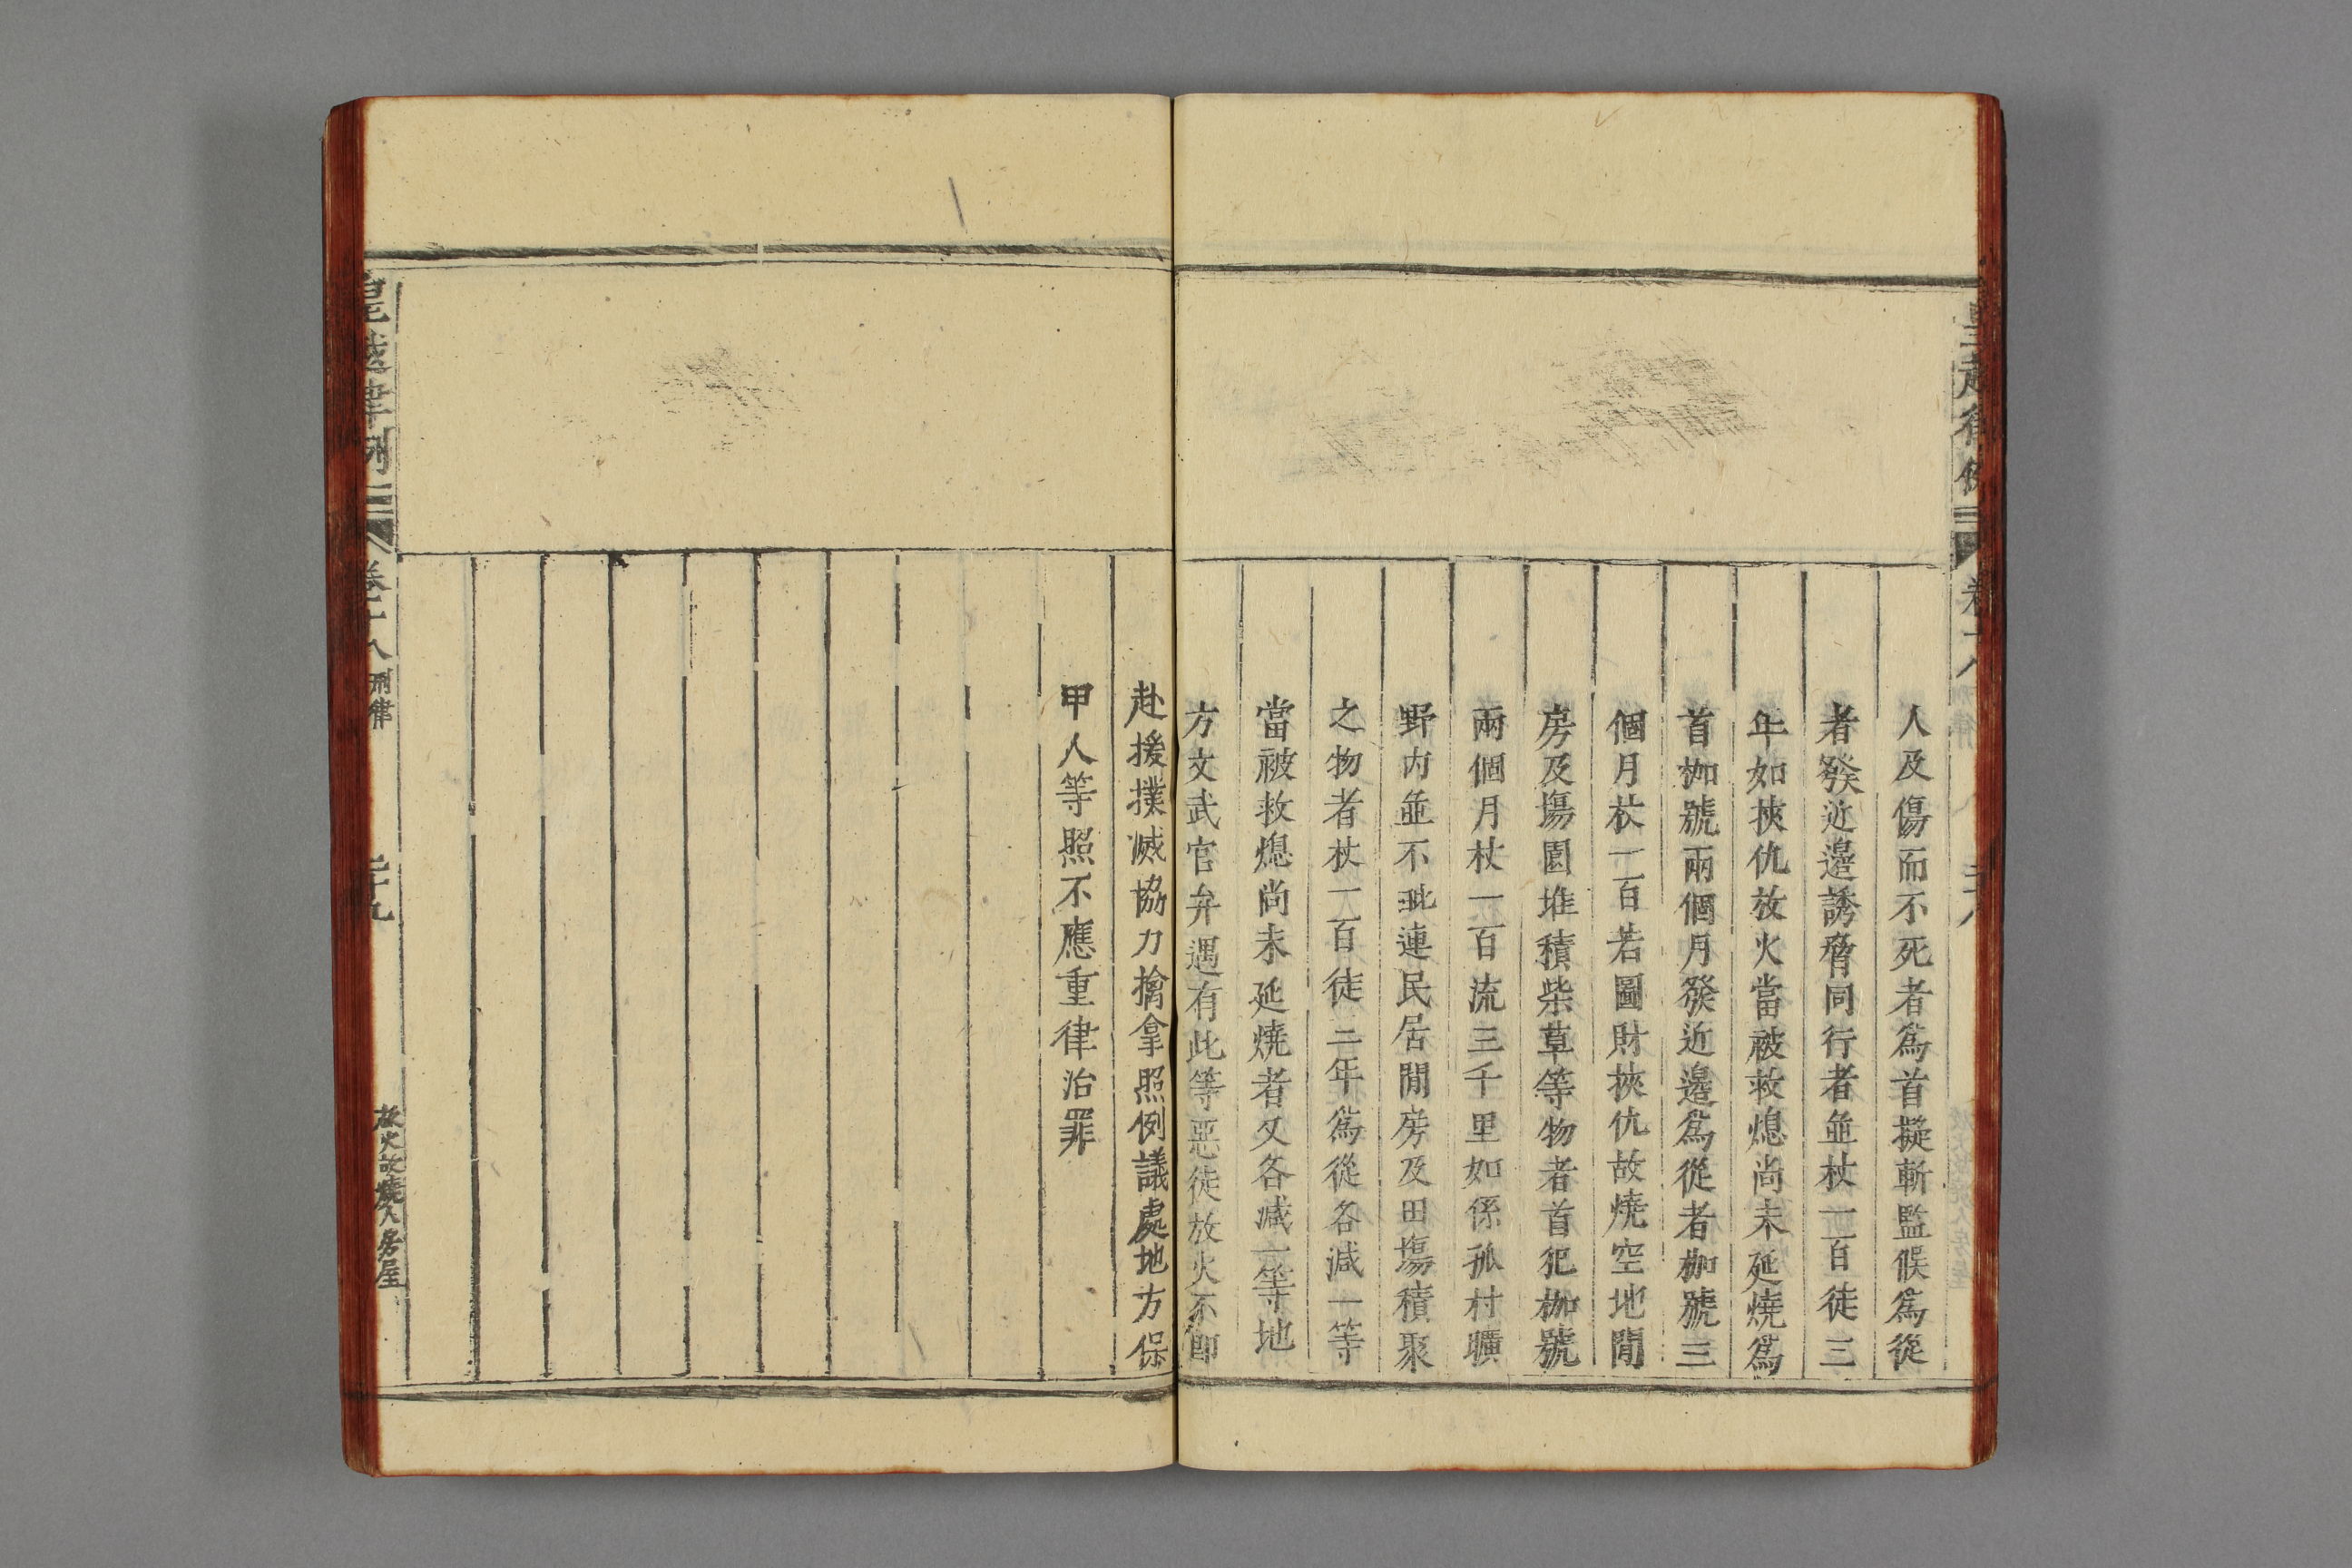 人及傷而不死者爲首擬斬監候爲從
者發近邊誘脅同行者並杖一百徒三
年如挾仇放火當被救熄尚未延燒爲
首枷號兩個月發近邊爲從者枷號三
個月杖一百若圖財挾仇故燒空地閒
房及塲園堆積柴草等物者首犯枷號
兩個月杖一百流三千里如係孤村曠
野內並不毗連民居閒房及田塲積聚
之物者杖一百徒三年爲從各減一等
當被救熄尚未延燒者又各減一等地
方文武官弁遇有此等惡徒放火不卽
赴援撲滅協力擒拿照例議處地方保
甲人等照不應重律治罪
皇越律例
卷十八
刑律
二十九
放火故燒人房屋